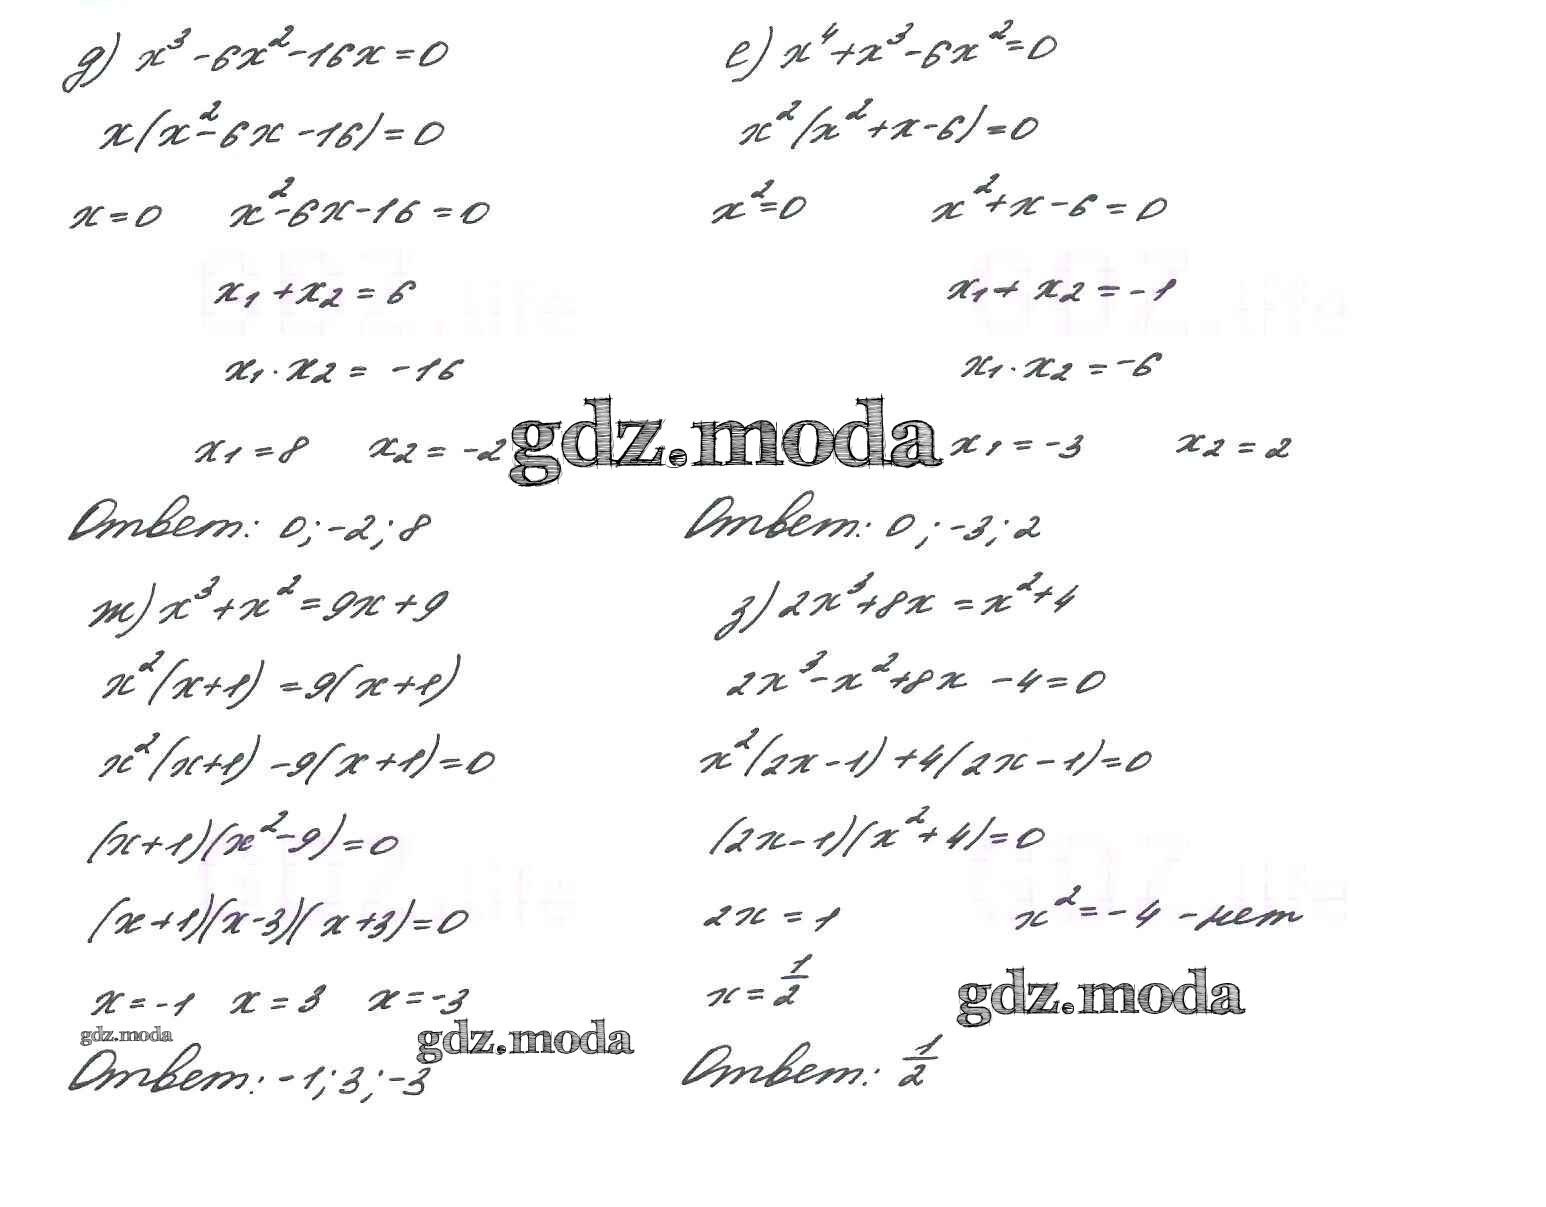 д) x³ - 6x² - 16x = 0
x(x² - 6x - 16) = 0
x = 0 x² - 6x - 16 = 0
x₁ + x₂ = 6
x₁ · x₂ = -16
x₁ = 8 x₂ = -2
Ответ: 0; -2; 8
е) x⁴ + x³ - 6x² = 0
x²(x² + x - 6) = 0
x² = 0 x² + x - 6 = 0
x₁ + x₂ = -1
x₁ · x₂ = -6
x₁ = -3 x₂ = 2
Ответ: 0; -3; 2
gdz.moda
ж) x³ + x² = 9x + 9
x²(x+1) = 9(x+1)
x²(x+1) - 9(x+1) = 0
(x+1)(x² - 9) = 0
(x+1)(x-3)(x+3) = 0
x = -1 x = 3 x = -3
gdz.moda
gdz.moda
Ответ: -1; 3; -3
з) 2x³ + 8x = x² + 4
2x³ - x² + 8x - 4 = 0
x²(2x - 1) + 4(2x - 1) = 0
(2x - 1)(x² + 4) = 0
2x = 1 x² = -4 - нет
x = 1/2
gdz.moda
Ответ: 1/2
GDZ.life
GDZ.life
GDZ.life
GDZ.life